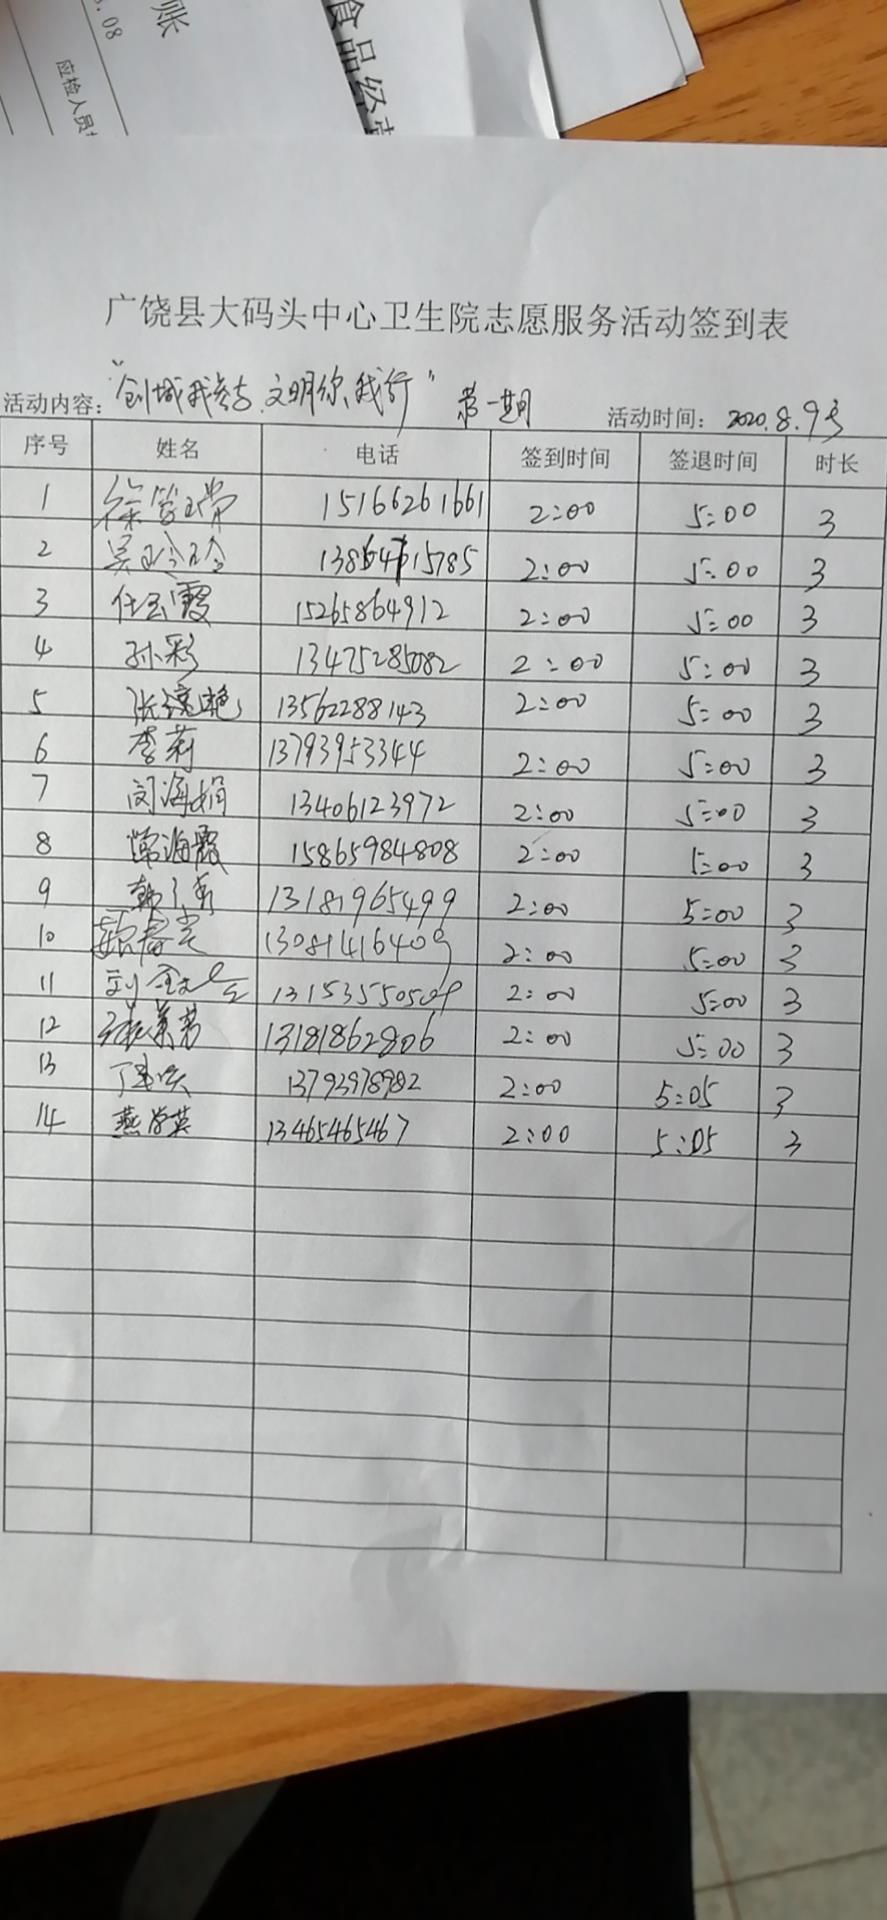 .08
账
应检人员
食品经营
广饶县大码头中心卫生院志愿服务活动签到表
活动内容："创城我参与 文明你我行" 第一期 活动时间：2020.8.9号
序号 姓名 电话 签到时间 签退时间 时长
1 15166261661 2:00 5:00 3
2 吴玲玲 2:00 5:00 3
3 任云霞 15265864912 2:00 5:00 3
4 孙彩 13475285082 2:00 5:00 3
5 13562288143 2:00 5:00 3
6 李莉 13793953344 2:00 5:00 3
7 闵海娟 13406123972 2:00 5:00 3
8 常海霞 15865984808 2:00 5:00 3
9 13181965499 2:00 5:00 3
10 13081416409 2:00 5:00 3
11 13153550509 2:00 5:00 3
12 13181862806 2:00 5:00 3
13 13793978982 2:00 5:05 3
14 燕学英 13465465467 2:00 5:05 3